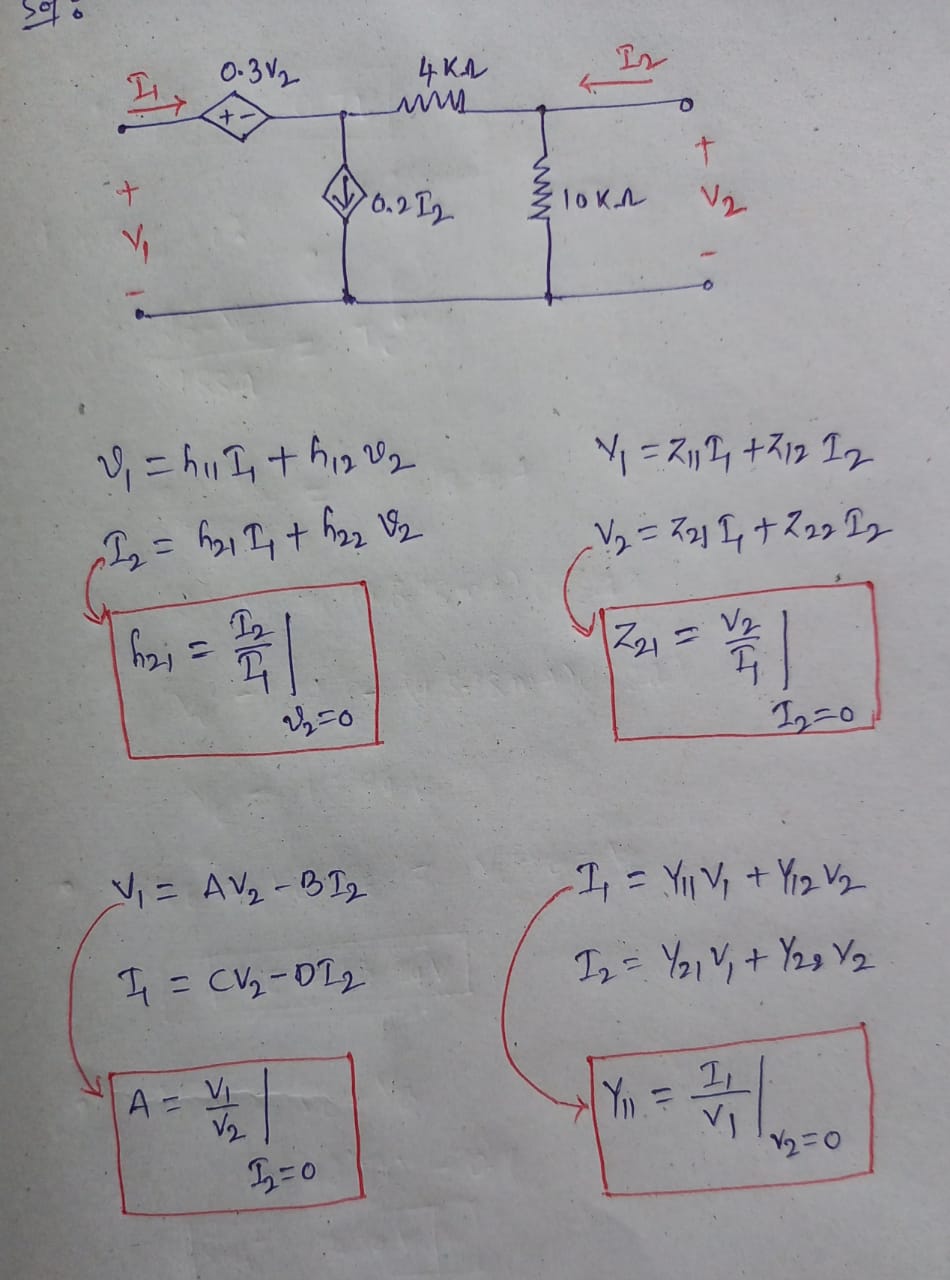 Sol:
I₁ 0.3V₂ 4KΩ I₂
+ -
+ V₁ -
0.2I₂
10KΩ
+ V₂ -
v₁ = h₁₁I₁ + h₁₂v₂
I₂ = h₂₁I₁ + h₂₂v₂
h₂₁ = I₂/I₁ | v₂=0
V₁ = Z₁₁I₁ + Z₁₂I₂
V₂ = Z₂₁I₁ + Z₂₂I₂
Z₂₁ = V₂/I₁ | I₂=0
V₁ = AV₂ - BI₂
I₁ = CV₂ - DI₂
A = V₁/V₂ | I₂=0
I₁ = Y₁₁V₁ + Y₁₂V₂
I₂ = Y₂₁V₁ + Y₂₂V₂
Y₁₁ = I₁/V₁ | V₂=0